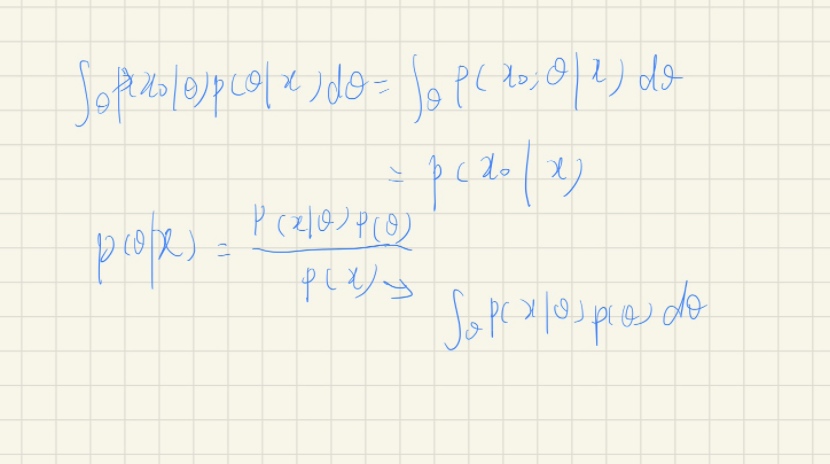 ∫_θ p(x₀|θ)p(θ|x)dθ = ∫_θ p(x₀,θ|x)dθ
= p(x₀|x)
p(θ|x) = P(x|θ)P(θ) / P(x) →
∫_θ p(x|θ)p(θ)dθ